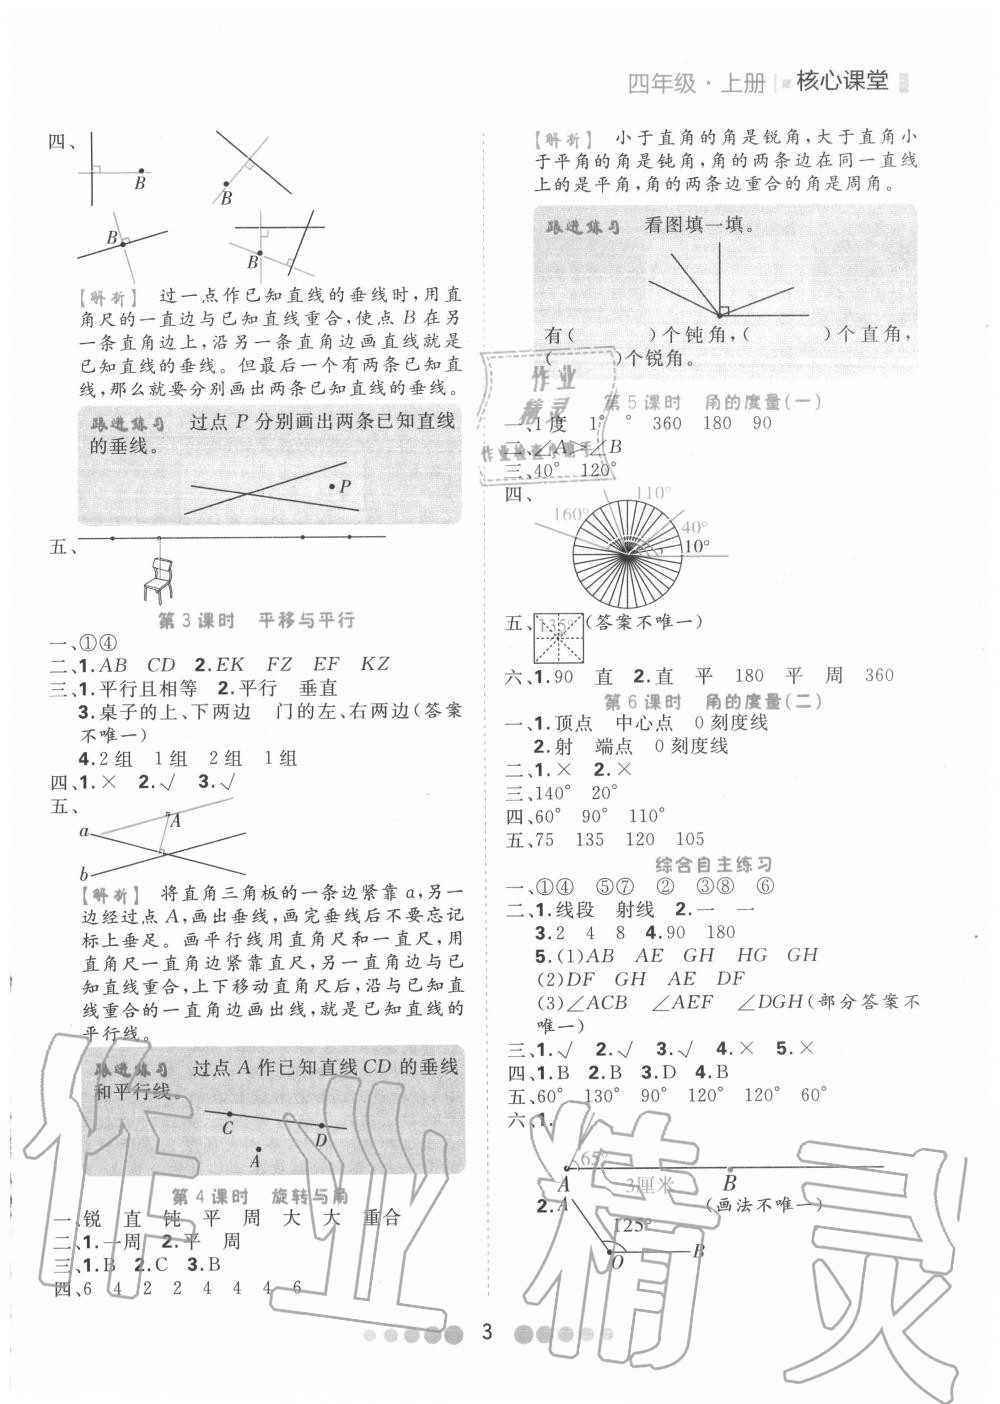 四年级·上册 核心课堂
四、
B
B
B
B
【解析】 过一点作已知直线的垂线时,用直
角尺的一直边与已知直线重合,使点 B 在另
一条直角边上,沿另一条直角边画直线就是
已知直线的垂线。但最后一个有两条已知直
线,那么就要分别画出两条已知直线的垂线。
跟进练习 过点 P 分别画出两条已知直线
的垂线。
P
五、
第 3 课时 平移与平行
一、①④
二、1. AB CD 2. EK FZ EF KZ
三、1. 平行且相等 2. 平行 垂直
3. 桌子的上、下两边 门的左、右两边(答案
不唯一)
4. 2 组 1 组 2 组 1 组
四、1. × 2. √ 3. √
五、
A
a
b
【解析】 将直角三角板的一条边紧靠 a,另一
边经过点 A,画出垂线,画完垂线后不要忘记
标上垂足。画平行线用直角尺和一直尺,用
直角尺一直角边紧靠直尺,另一直角边与已
知直线重合,上下移动直角尺后,沿与已知直
线重合的一直角边画出线,就是已知直线的
平行线。
跟进练习 过点 A 作已知直线 CD 的垂线
和平行线。
C
D
A
第 4 课时 旋转与角
一、锐 直 钝 平 周 大 大 重合
二、1. 一周 2. 平 周
三、1. B 2. C 3. B
四、6 4 2 2 4 4 4 6
【解析】 小于直角的角是锐角,大于直角小
于平角的角是钝角,角的两条边在同一直线
上的是平角,角的两条边重合的角是周角。
跟进练习 看图填一填。
有( )个钝角,( )个直角,
( )个锐角。
第 5 课时 角的度量(一)
一、1 度 1° ° 360 180 90
二、∠A>∠B
三、40° 120°
四、
110°
160°
40°
10°
五、135° (答案不唯一)
六、1. 90 直 2. 直 平 180 平 周 360
第 6 课时 角的度量(二)
一、1. 顶点 中心点 0 刻度线
2. 射 端点 0 刻度线
二、1. × 2. ×
三、140° 20°
四、60° 90° 110°
五、75 135 120 105
综合自主练习
一、①④ ⑤⑦ ② ③⑧ ⑥
二、1. 线段 射线 2. 一 一
3. 2 4 8 4. 90 180
5. (1)AB AE GH HG GH
(2)DF GH AE DF
(3)∠ACB ∠AEF ∠DGH(部分答案不
唯一)
三、1. √ 2. √ 3. √ 4. × 5. ×
四、1. B 2. B 3. D 4. B
五、60° 130° 90° 120° 120° 60°
六、1.
65°
A B
3厘米
2. A (画法不唯一)
125°
O B
3
作业
精灵
作业精灵